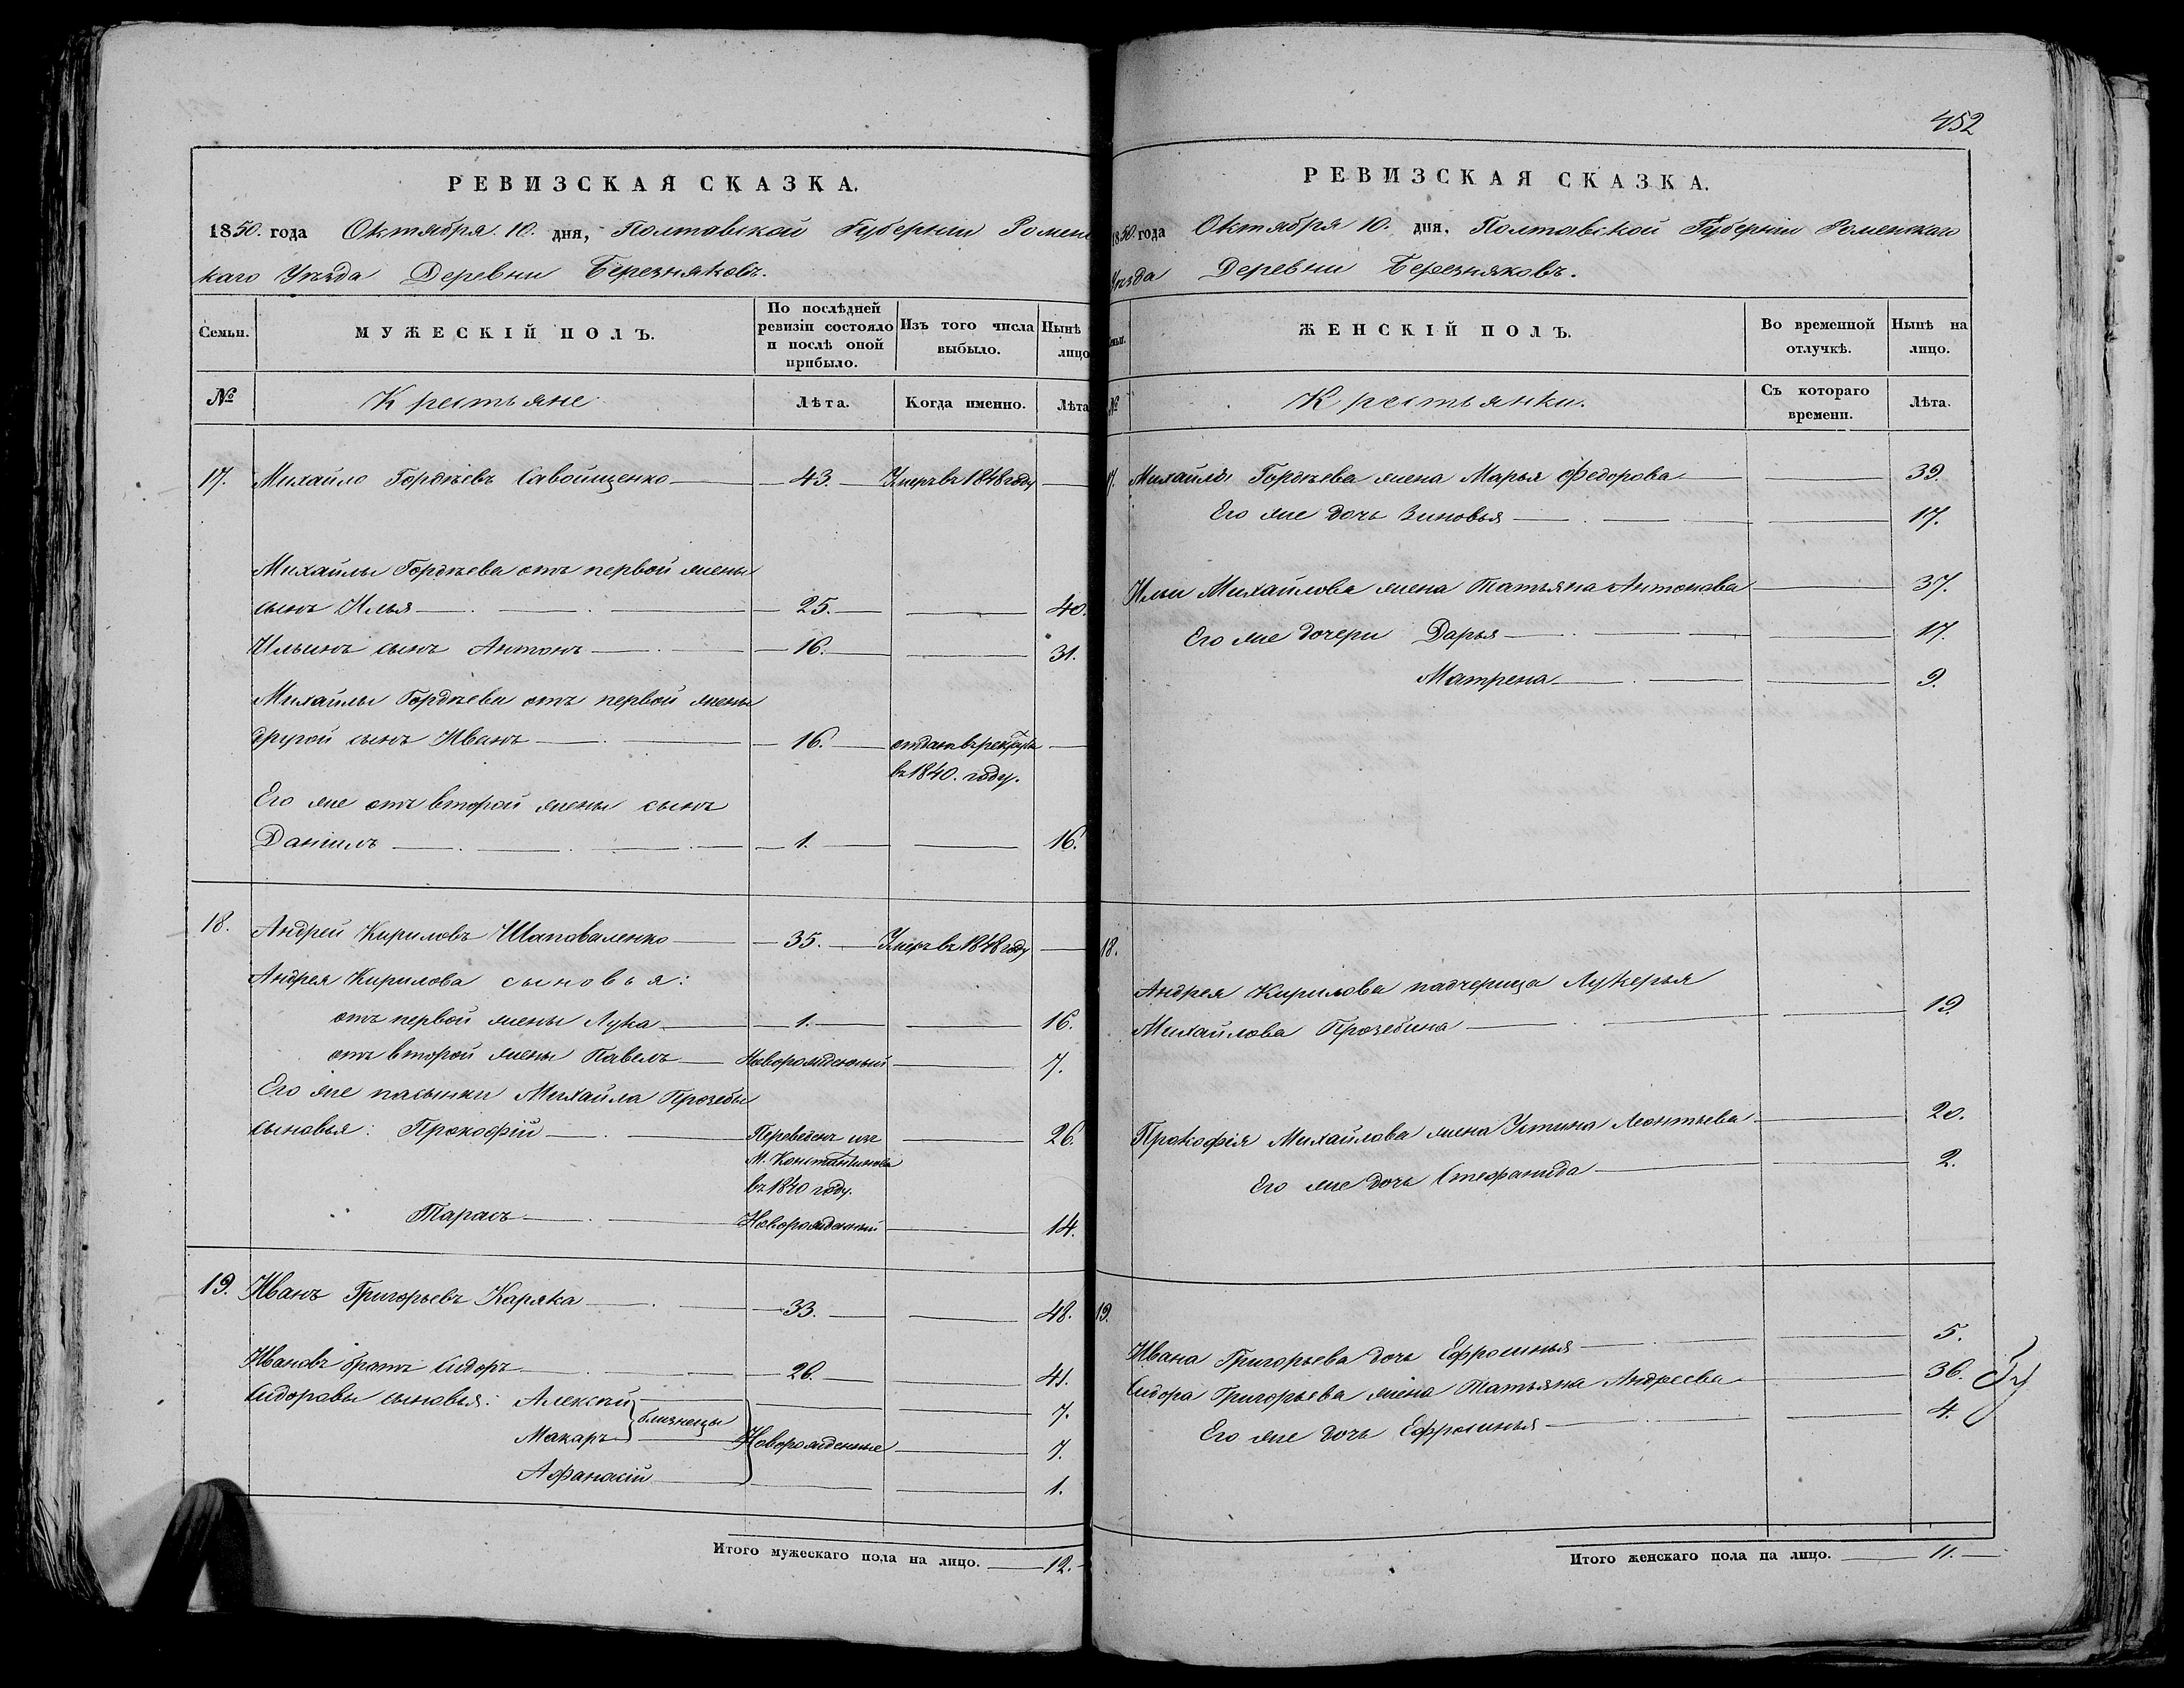 РЕВИЗСКАЯ СКАЗКА.
1850. года Октября. 10. дня, Полтавской Губернии Роменс
каго Уѣзда Деревни Березняковъ.
Семьи. МУЖЕСКІЙ ПОЛЪ. По послѣдней ревизіи состояло и послѣ оной прибыло. Изъ того числа выбыло. Нынѣ лицо
№ Крестьяне Лѣта. Когда именно. Лѣта
17. Михайло Гордѣевъ Савойщенко 43. Умеръ въ 1848 году
Михайлы Гордѣева отъ первой жены
сынъ Илья 25. 40.
Ильинъ сынъ Антонъ 16. 31.
Михайлы Гордѣева отъ первой жены
другой сынъ Иванъ 16. отданъ въ рекруты
въ 1840. году.
Его же отъ второй жены сынъ
Данилъ 1. 16.
18. Андрей Кириловъ Шаповаленко 35. Умеръ въ 1848 году
Андрея Кирилова сыновья:
отъ первой жены Лука 1. 16.
отъ второй жены Павелъ Новорожденный 7.
Его же пасынки Михайла Прозебы
сыновья: Прокофій Переведенъ изъ 26.
М. Константинова
въ 1840 году.
Тарасъ Новорожденный 14.
19. Иванъ Григорьевъ Каряка 33. 48.
Ивановъ братъ Сидоръ 26. 41.
Сидоровы сыновья: Алексѣй 7.
близнецы
Макаръ Новорожденные 7.
Афанасій 1.
Итого мужескаго пола на лицо. 12.
452
РЕВИЗСКАЯ СКАЗКА.
1850 года Октября 10. дня. Полтавской Губерніи Роменскаго
Уѣзда Деревни Березняковъ.
ЖЕНСКІЙ ПОЛЪ. Во временной отлучкѣ. Нынѣ на лицо.
№ Крестьянки. Съ котораго времени. Лѣта.
Михайлы Гордѣева жена Марья Федорова 39.
Его же дочь Зиновья 17.
Ильи Михайлова жена Татьяна Антонова 37.
Его же дочери Дарья 17.
Матрена 9.
18.
Андрея Кирилова падчерица Лукерья
Михайлова Прозебина 19.
Прокофія Михайлова жена Устина Леонтьева 20.
Его же дочь Стефанида 2.
19.
Ивана Григорьева дочь Ефросинья 5.
Сидора Григорьева жена Татьяна Андреева 36.
Его же дочь Ефросинья 4.
Итого женскаго пола на лицо. 11.